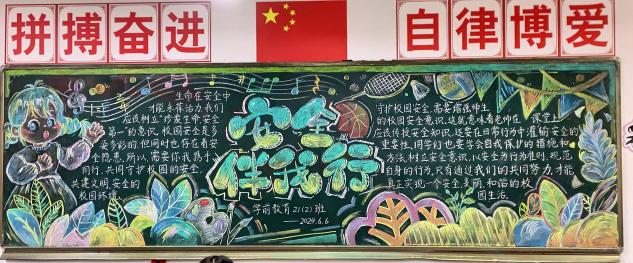 拼搏奋进
自律博爱
生命在安全中
才能永葆活力,我们
应该树立"珍爱生命,安全
第一"的意识,校园安全是多
姿多彩的,但同时也存在着安
全隐患,所以,需要你我携手
同行,共同守护校园的安全,
共建文明,安全的
校园环境。
安全
伴我行
学前教育21(2)班
——2024.6.6
守护校园安全,需要增强师生
的校园安全意识,这就意味着老师在课堂上
应该传授安全知识,还要在日常行为中灌输安全的
重要性,同学们也要学会自我保护的措施和
方法,树立安全意识,以安全为行为准则,规范
自身的行为,只有通过我们的共同努力,才能
真正实现一个安全,文明,和谐的校
园生活。